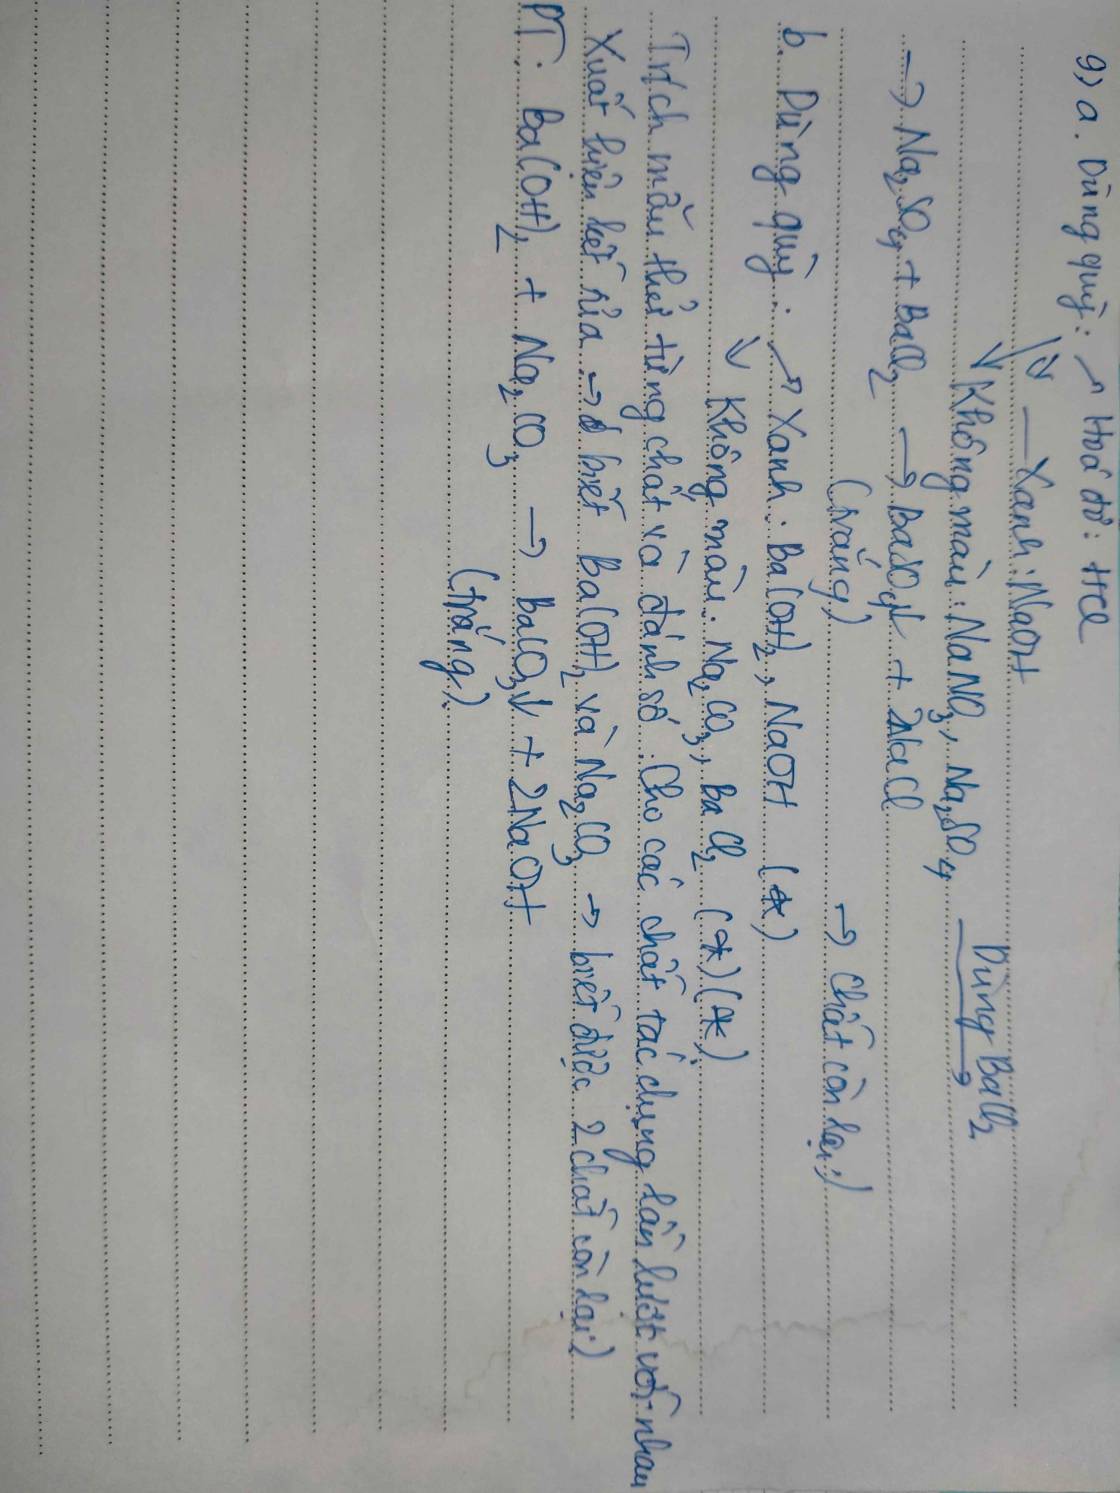 9) a. Dùng quỳ: → Hoá đỏ: HCl
→ Xanh: NaOH
↓ Không màu: NaNO3, Na2SO4 Dùng BaCl2 →
→ Na2SO4 + BaCl2 → BaSO4↓ + 2NaCl
(trắng) → Chất còn lại)
b. Dùng quỳ: → Xanh: Ba(OH)2, NaOH (*)
↓ Không màu: Na2CO3, BaCl2 (*)(*)
Trích mẫu thử từng chất và đánh số. Cho các chất tác dụng lần lượt với nhau
Xuất hiện kết tủa → biết Ba(OH)2 và Na2CO3 → biết được 2 chất còn lại)
PT: Ba(OH)2 + Na2CO3 → BaCO3↓ + 2NaOH
(trắng).